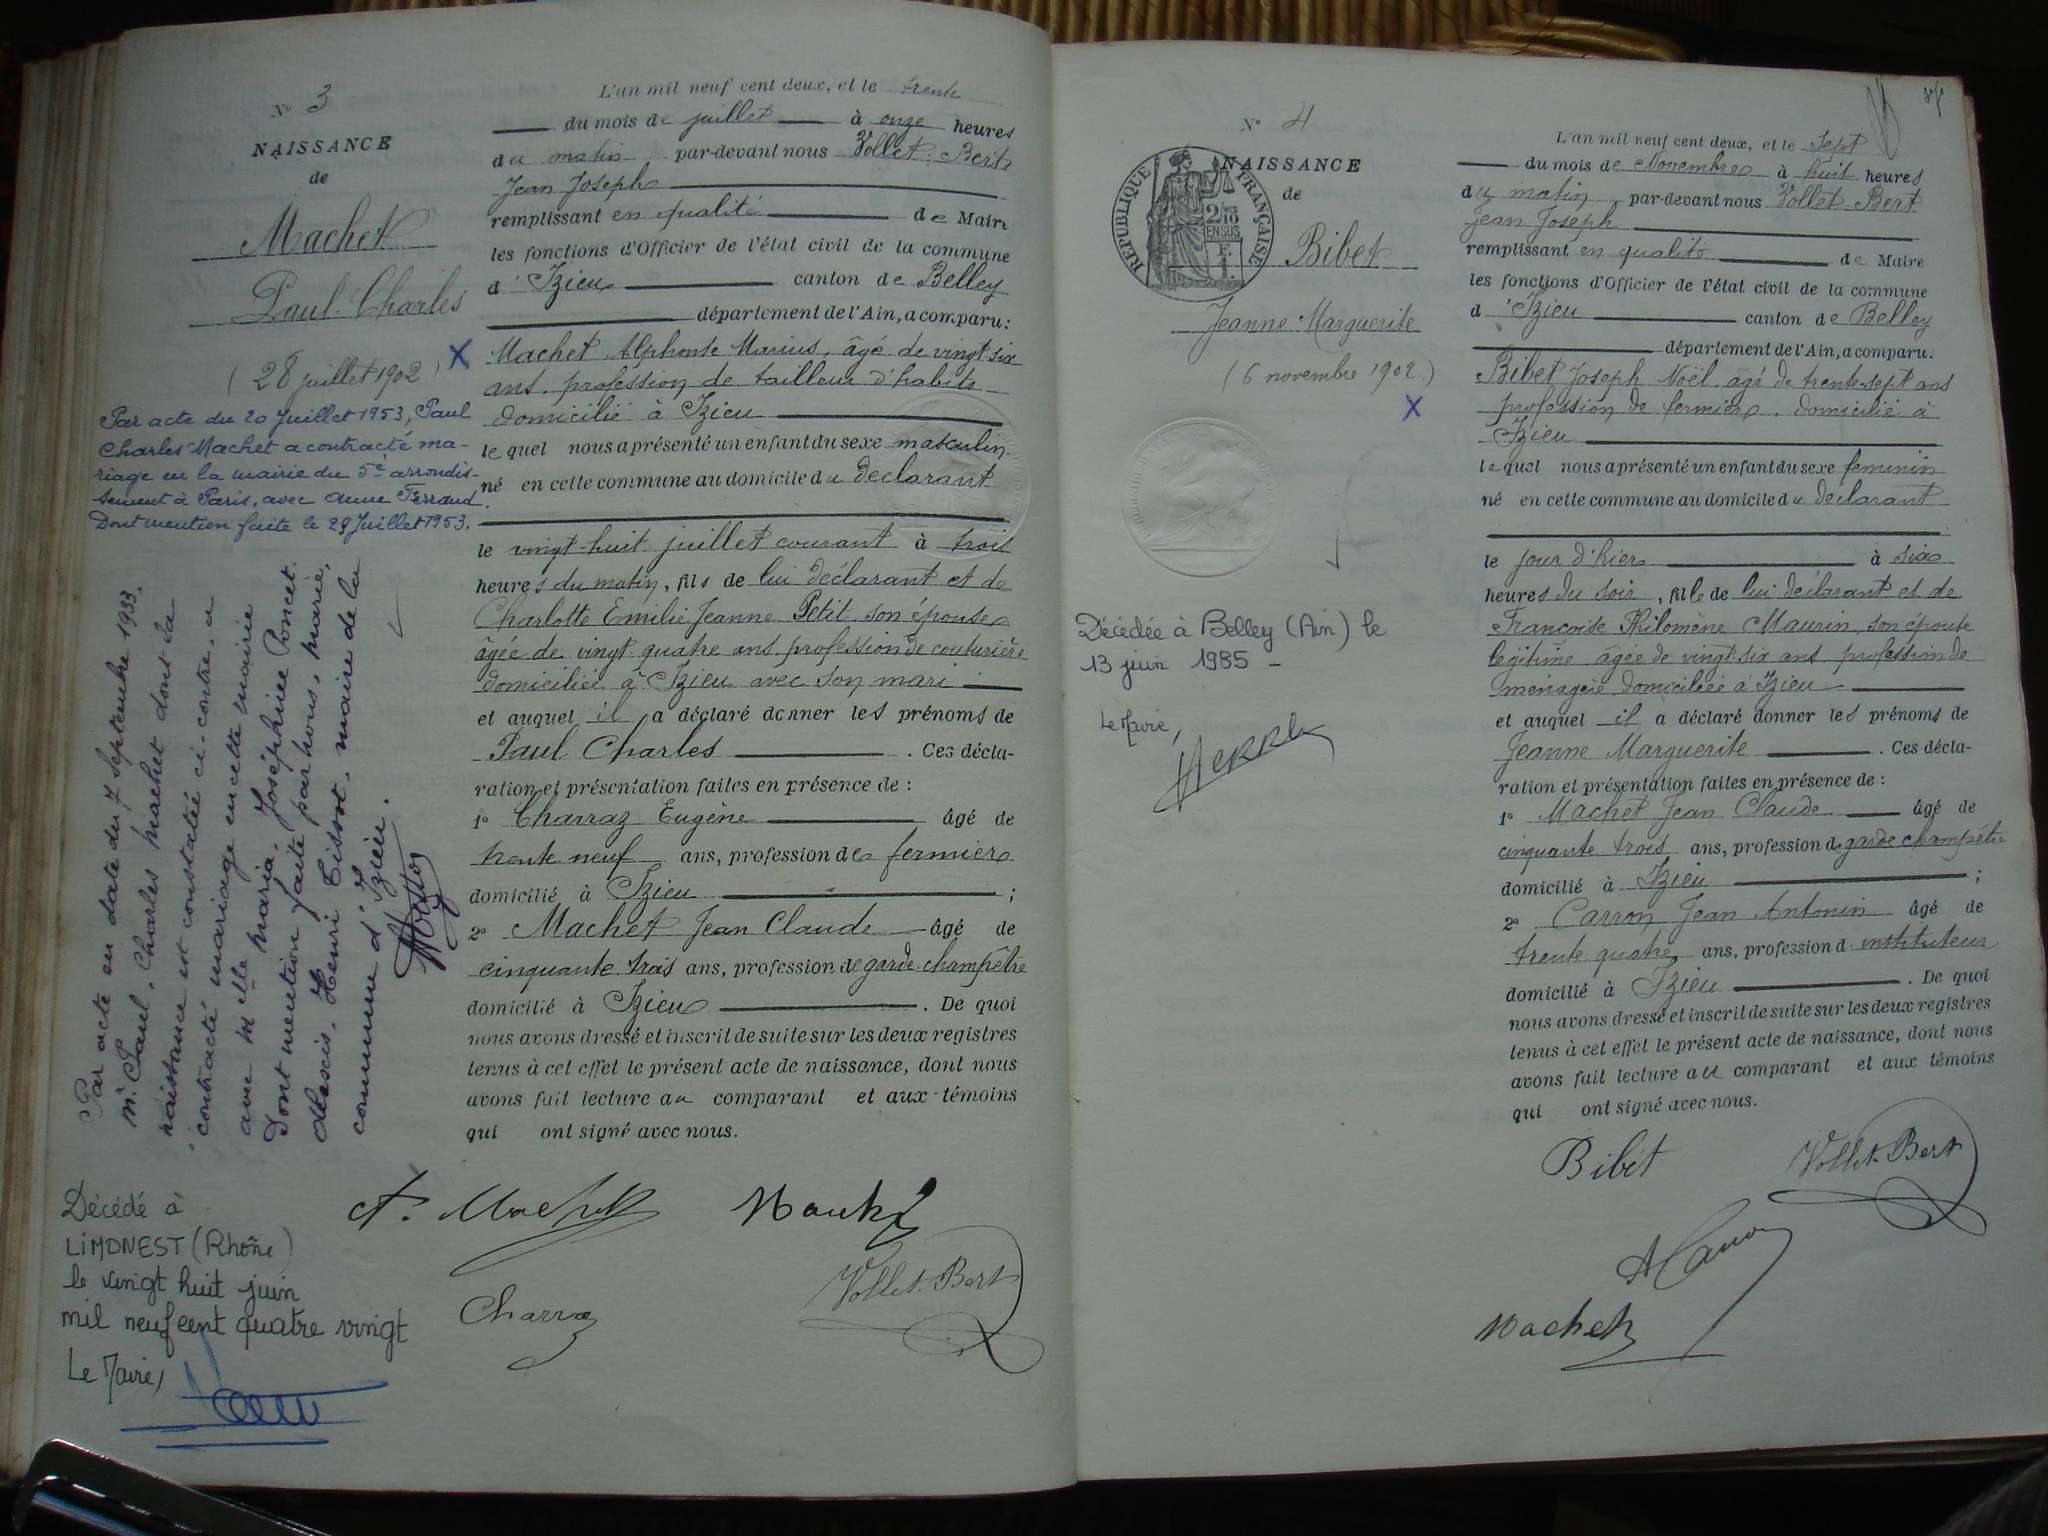 N° 3
NAISSANCE
de
Machet
Paul Charles
(28 juillet 1902)
X
Par acte du 20 Juillet 1953, Paul
Charles Machet a contracté ma-
riage en la mairie du 5e arrondis-
sement à Paris, avec Anne Ferraud.
Dont mention faite le 29 Juillet 1953.
Par acte en date du 7 Septembre 1933,
Mr. Paul, Charles Machet dont la
naissance est constatée ci-contre, a
contracté mariage en cette mairie
avec Melle Maria, Joséphine Poncet.
Dont mention faite par nous, Marie,
Alexis, Henri Tissot, maire de la
commune d'Izieu.
Décédé à
LIMONEST (Rhône)
le vingt huit juin
mil neuf cent quatre vingt
Le Maire,
L'an mil neuf cent deux, et le trente
du mois de juillet à onze heures
du matin par-devant nous Vollet-Bert
Jean Joseph
remplissant en qualité de Maire
les fonctions d'Officier de l'état civil de la commune
d'Izieu canton de Belley
département de l'Ain, a comparu:
Machet Alphonse Marius, âgé de vingt-six
ans, profession de tailleur d'habits
domicilié à Izieu
lequel nous a présenté un enfant du sexe masculin
né en cette commune au domicile du déclarant
le vingt-huit juillet courant à trois
heures du matin, fils de lui déclarant et de
Charlotte Emilie Jeanne Petit son épouse
âgée de vingt-quatre ans profession de couturière
domiciliée à Izieu avec son mari
et auquel il a déclaré donner les prénoms de
Paul Charles . Ces décla-
ration et présentation faites en présence de :
1° Charraz Eugène âgé de
trente neuf ans, profession de fermier
domicilié à Izieu ;
2° Machet Jean Claude âgé de
cinquante trois ans, profession de garde-champêtre
domicilié à Izieu . De quoi
nous avons dressé et inscrit de suite sur les deux registres
tenus à cet effet le présent acte de naissance, dont nous
avons fait lecture au comparant et aux témoins
qui ont signé avec nous.
A. Machet Machet
Vollet-Bert
Charraz
N° 4
NAISSANCE
de
RÉPUBLIQUE FRANÇAISE
2/10
EN SUS
F.
1.
Bibet
Jeanne Marguerite
(6 novembre 1902.)
X
Décédée à Belley (Ain) le
13 juin 1985 -
Le Maire,
L'an mil neuf cent deux, et le Sept
du mois de Novembre à huit heures
du matin par-devant nous Vollet-Bert
Jean Joseph
remplissant en qualité de Maire
les fonctions d'Officier de l'état civil de la commune
d'Izieu canton de Belley
département de l'Ain, a comparu:
Bibet Joseph Noël âgé de trente-sept ans
profession de fermier, domicilié à
Izieu
lequel nous a présenté un enfant du sexe féminin
né en cette commune au domicile du déclarant
le jour d'hier à six
heures du soir, fille de lui déclarant et de
Françoise Philomène Maurin, son épouse
légitime âgée de vingt-six ans profession de
ménagère domiciliée à Izieu
et auquel il a déclaré donner les prénoms de
Jeanne Marguerite . Ces décla-
ration et présentation faites en présence de :
1° Machet Jean Claude âgé de
cinquante trois ans, profession de garde champêtre
domicilié à Izieu ;
2° Carron Jean Antonin âgé de
trente quatre ans, profession d'instituteur
domicilié à Izieu . De quoi
nous avons dressé et inscrit de suite sur les deux registres
tenus à cet effet le présent acte de naissance, dont nous
avons fait lecture au comparant et aux témoins
qui ont signé avec nous.
Bibet Vollet-Bert
A Carron
Machet